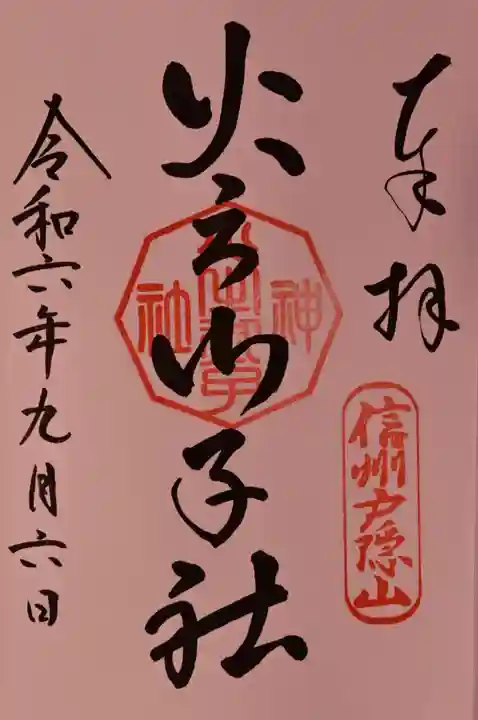 奉拝
信州戸隠山
火之御子社
神
社
令和六年九月六日